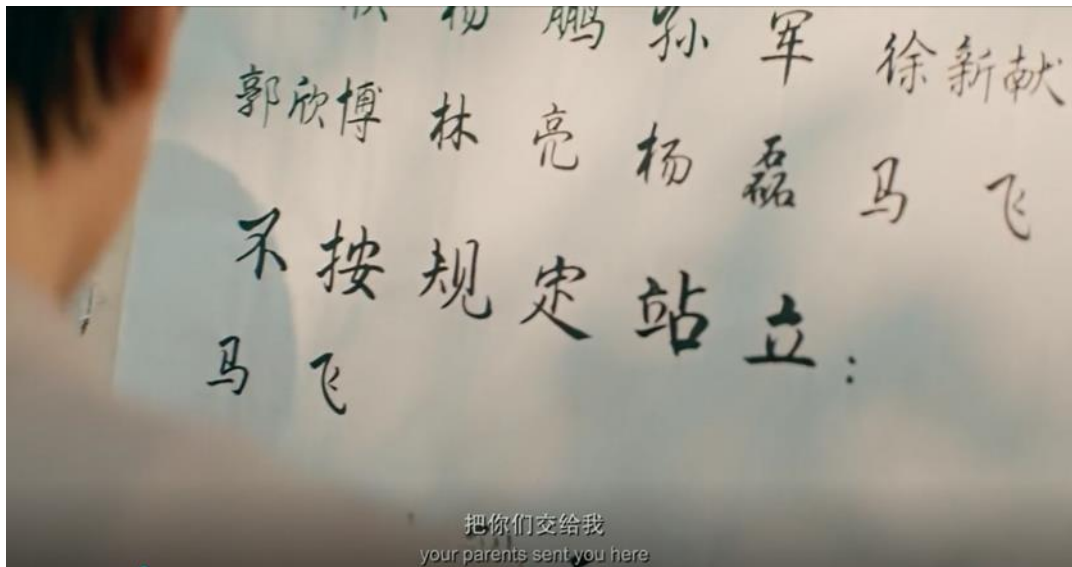 杨 鹏 孙 军 徐新献
郭欣博 林 亮 杨 磊 马 飞
不按规定站立：
马 飞
把你们交给我
your parents sent you here